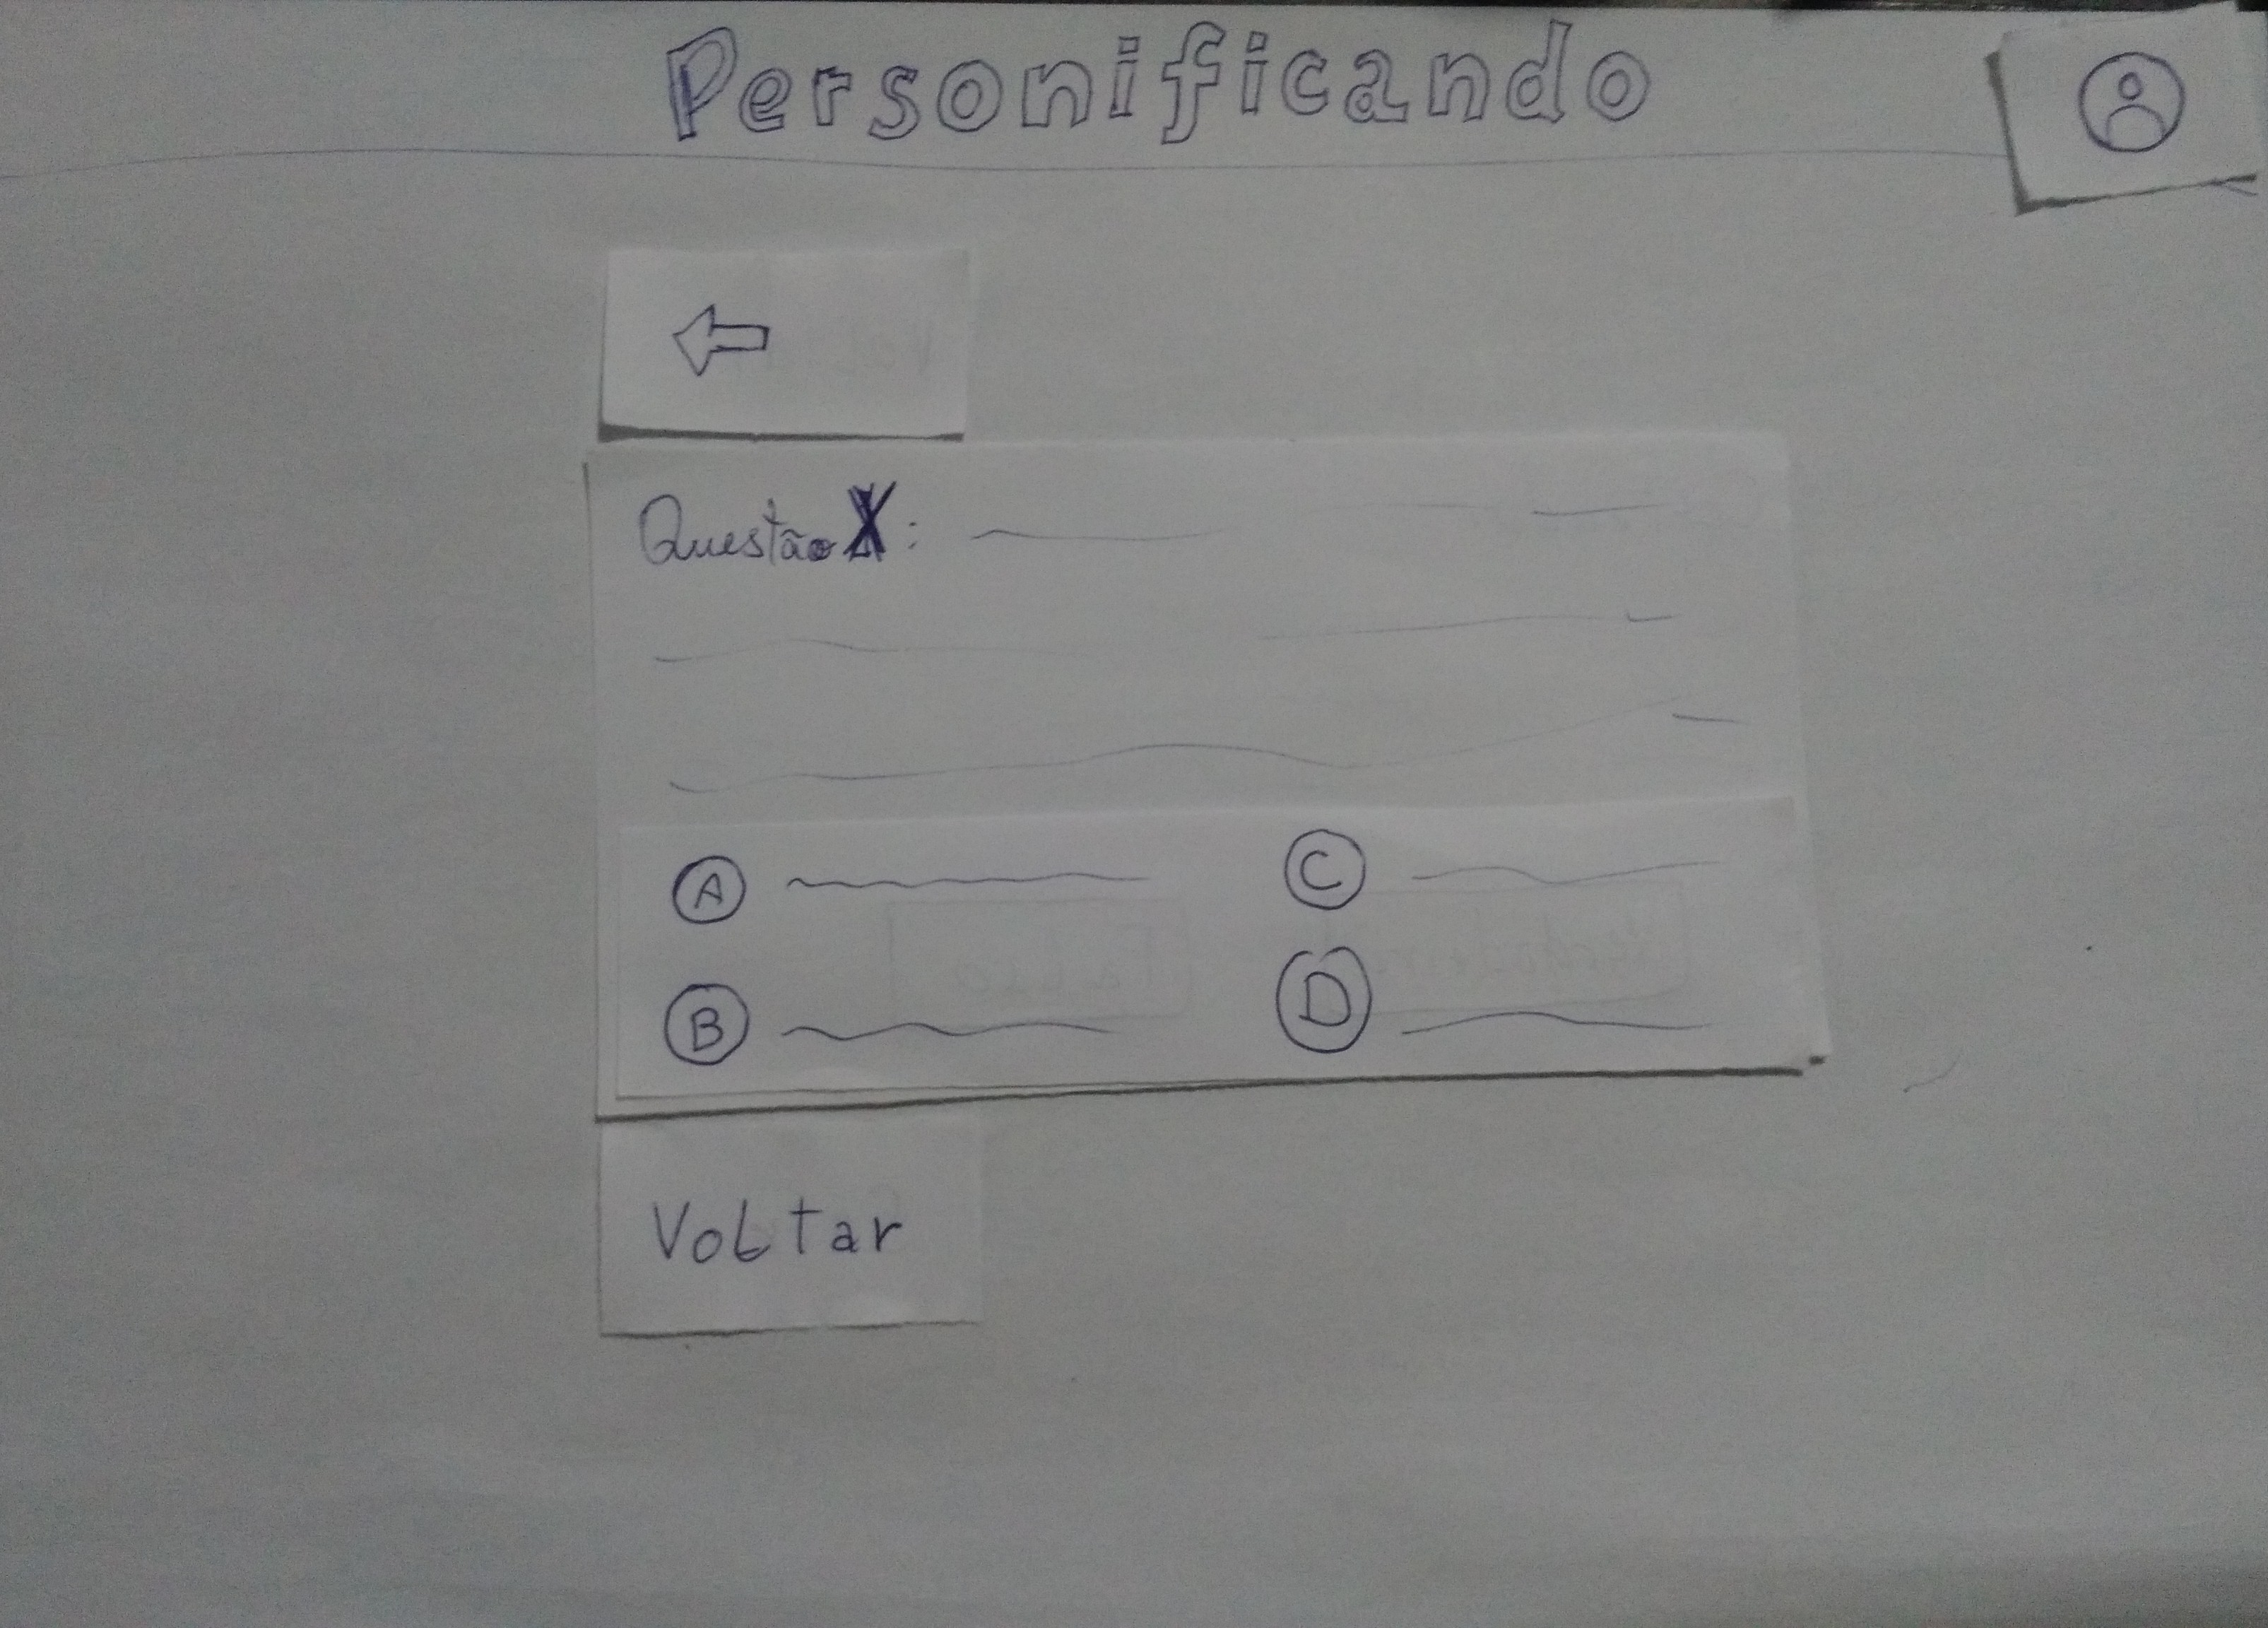 Personificando
Questão X:
A
C
B
D
Voltar